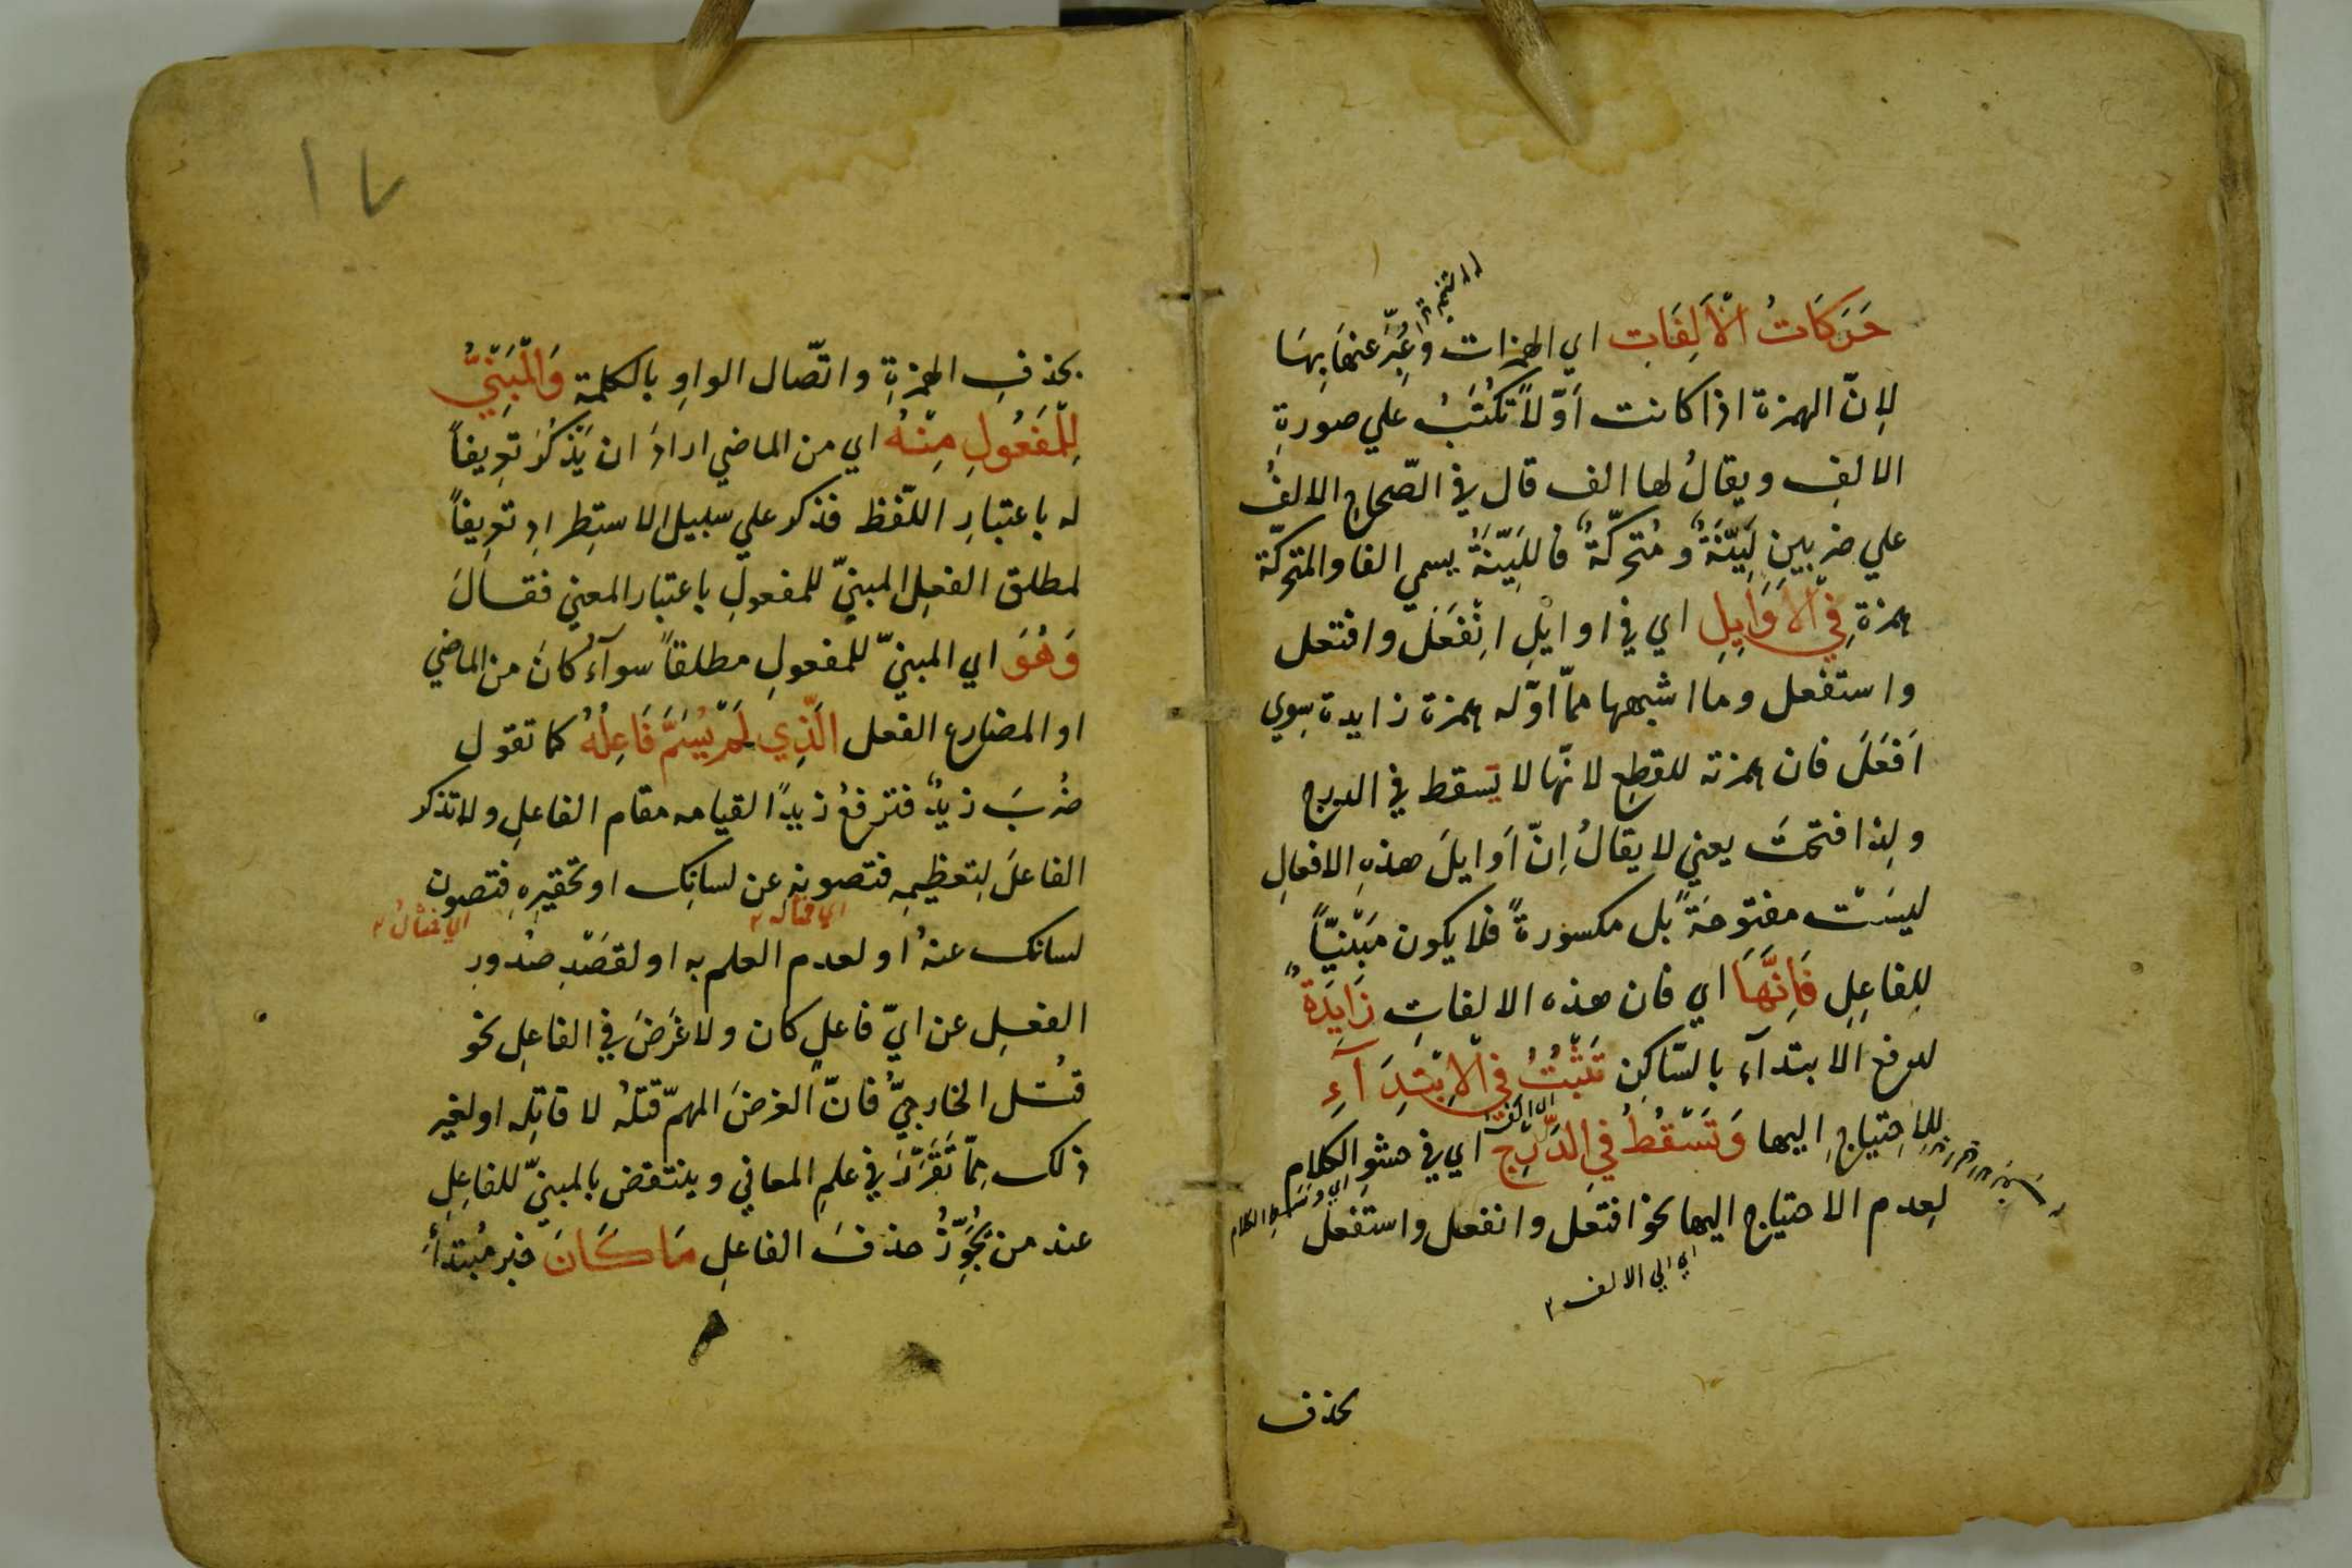 حَرَكَاتُ الْأَلِفَاتِ اي الهمزات وعُبِّرَ عنهَا بِهَا
لِانّ الهمزة اذا كانت اَوّلاً تُكْتَبُ علي صورةِ
الالفِ ويقالُ لها الف قال في الصّحاح الالفُ
علي ضربينِ لَيّنَةٌ ومُتحرّكةٌ فاللَّيّنَةُ يسمي الفا والمتحرّكة
همزةِ فِي الْأَوَايِلِ اي في اوايْلِ اِنْفَعَلَ وافتعل
واستفعل وما اشبهها ممّا اوّله همزة زايدة سِوي
اَفعَلَ فان همزته للقطعِ لانّها لا تسقط في الدرج
ولِذا فتحتَ يعني لا يقالُ اِنّ اَوايلَ هذهِ الافعالِ
ليسَتْ مفتوحَةً بل مكسورةً فلا يكون مَبْنيّاً
لِلفاعِلِ فَاِنَّهَا اي فان هذه الالفاتِ زَايِدَةٌ
لدفع الابتدآء بالسّاكِن تَثْبُتُ فِي الْاِبْتِدَآءِ
لِلاِحتِياجِ اليها وَتَسْقُطُ فِي الدَّرَجِ اي في حشوِ الكلامِ
اي وسط الكلام
لِعدم الاحتياج اليها نحو افتعل وانفعل واستَفعل
اي الي الالف ٢
بحذف
١٧
بحذفِ الهمزةِ واتّصال الواوِ بالكلمة وَالْمَبْنِيُّ
لِلْمَفْعُولِ مِنْهُ اي من الماضي ارادَ ان يَذْكُرَ تعرِيفاً
له باعتبارِ اللّفظ فذكر علي سبيل الاستِطرادِ تعرِيفاً
لمطلق الفعلِ المبنيّ للمفعولِ باعتبار المعني فقالَ
وَهُوَ اي المبنيّ للمفعولِ مطلقاً سوآءٌ كانَ من الماضي
او المضارع الفعل الَّذِي لَمْ يُسَمَّ فَاعِلُهُ كما تقول
ضُرِبَ زيدٌ فترفعُ زيدًا لقيامه مقام الفاعلِ ولا تذكر
الفاعلَ لِتعظِيمِه فتصونه عن لسانِك او تحقيرِهِ فتصون
لسانك عنهُ او لعدم العلم به او لقصَدِ صُدُورِ
الفعلِ عن ايّ فاعلٍ كان ولا غَرَضَ في الفاعلِ نحو
قُتل الخارجيُّ فانّ الغرضَ المهمّ قتلهُ لا قاتِله او لغير
ذلك مِمّا تَقَرَّرَ في علمِ المعاني وينتقض بالمبنيّ للفاعِلِ
عند من يُجَوِّزُ حذفَ الفاعلِ مَا كَانَ خبر مُبتدأ